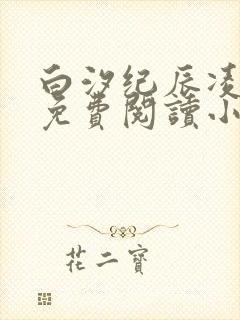 白汐纪辰凌
免費閱讀小
花二寶